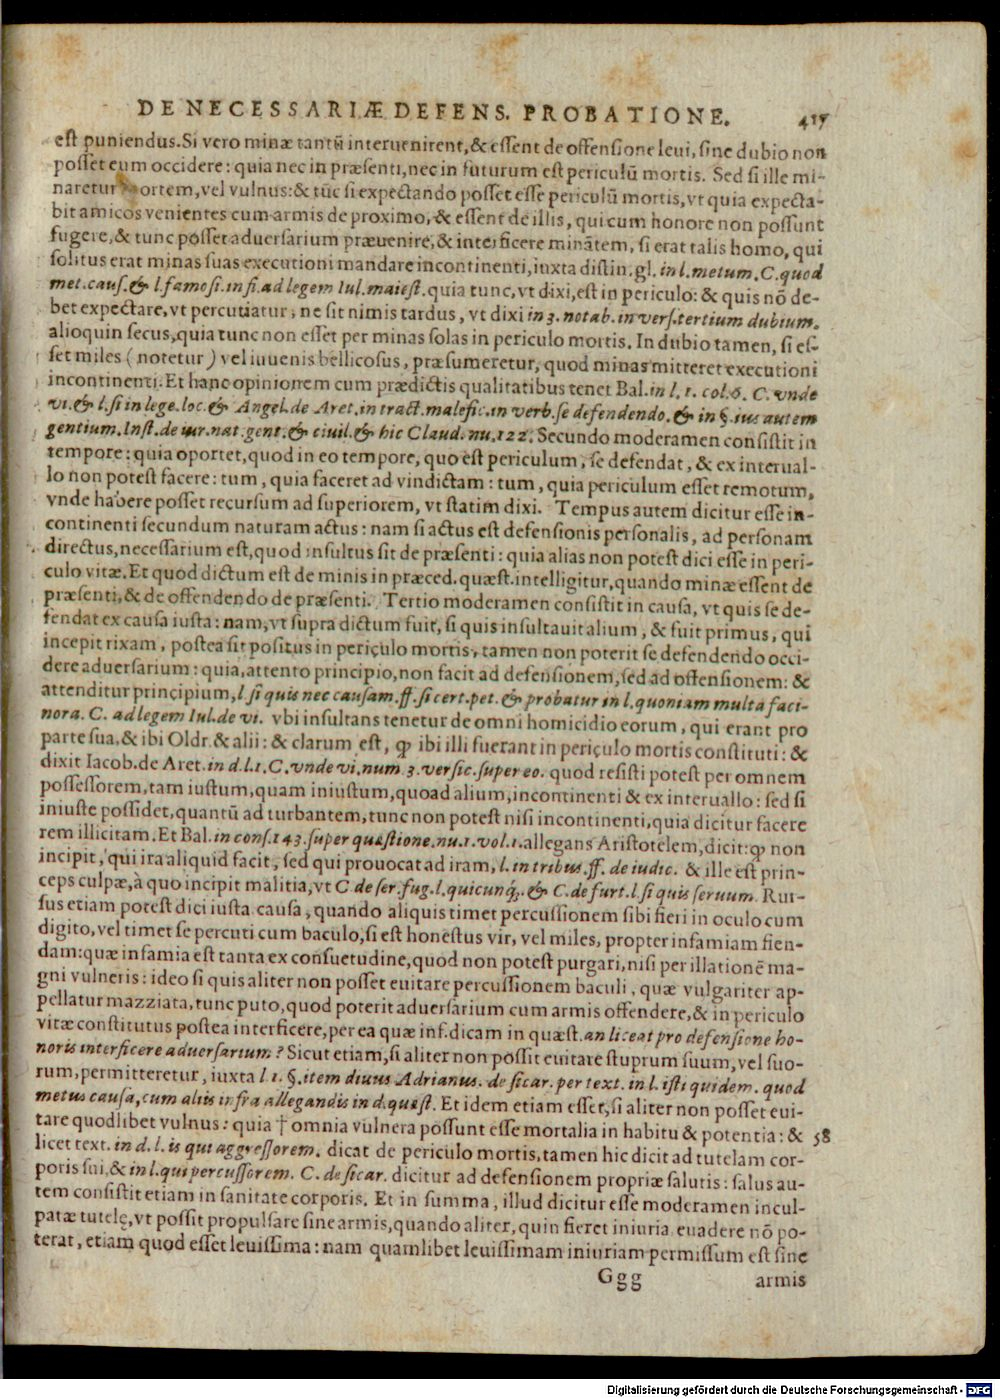 DE NECESSARIÆ DEFENS. PROBATIONE. 417
est puniendus. Si vero minæ tantũ interuenirent, & essent de offensione leui, sine dubio non
posset eum occidere: quia nec in præsenti, nec in futurum est periculũ mortis. Sed si ille mi-
naretur mortem, vel vulnus: & tũc si expectando posset esse periculũ mortis, vt quia expecta-
bit amicos venientes cum armis de proximo, & essent de illis, qui cum honore non possunt
fugere, & tunc posset aduersarium præuenire, & interficere minãtem, si erat talis homo, qui
solitus erat minas suas executioni mandare incontinenti, iuxta distin. gl. in l. metum. C. quod
met. caus. & l. famosi. in fi. ad legem Iul. maiest. quia tunc, vt dixi, est in periculo: & quis nõ de-
bet expectare, vt percutiatur, ne sit nimis tardus, vt dixi in 3. notab. in vers. tertium dubium.
alioquin secus, quia tunc non esset per minas solas in periculo mortis. In dubio tamen, si es-
set miles (notetur) vel iuuenis bellicosus, præsumeretur, quod minas mitteret executioni
incontinenti. Et hanc opinionem cum prædictis qualitatibus tenet Bal. in l. 1. col. 6. C. vnde
vi. & l. si in lege. loc. & Angel. de Aret. in tract. malefic. in verb. se defendendo. & in §. ius autem
gentium. Inst. de iur. nat. gent. & ciuil. & hic Claud. nu. 122. Secundo moderamen consistit in
tempore: quia oportet, quod in eo tempore, quo est periculum, se defendat, & ex interual-
lo non potest facere: tum, quia faceret ad vindictam: tum, quia periculum esset remotum,
vnde habere posset recursum ad superiorem, vt statim dixi. Tempus autem dicitur esse in-
continenti secundum naturam actus: nam si actus est defensionis personalis, ad personam
directus, necessarium est, quod insultus sit de præsenti: quia alias non potest dici esse in peri-
culo vitæ. Et quod dictum est de minis in præced. quæst. intelligitur, quando minæ essent de
præsenti, & de offendendo de præsenti. Tertio moderamen consistit in causa, vt quis se de-
fendat ex causa iusta: nam, vt supra dictum fuit, si quis insultauit alium, & fuit primus, qui
incepit rixam, postea sit positus in periculo mortis, tamen non poterit se defendendo occi-
dere aduersarium: quia, attento principio, non facit ad defensionem, sed ad offensionem: &
attenditur principium, l. si quis nec causam. ff. si cert. pet. & probatur in l. quoniam multa faci-
nora. C. ad legem Iul. de vi. vbi insultans tenetur de omni homicidio eorum, qui erant pro
parte sua, & ibi Oldr. & alii: & clarum est, ꝙ ibi illi fuerant in periculo mortis constituti: &
dixit Iacob. de Aret. in d. l. 1. C. vnde vi. num. 3. versic. super eo. quod resisti potest per omnem
possessorem, tam iustum, quam iniustum, quoad alium, incontinenti & ex interuallo: sed si
iniuste possidet, quantũ ad turbantem, tunc non potest nisi incontinenti, quia dicitur facere
rem illicitam. Et Bal. in cons. 143. super quæstione. nu. 1. vol. 1. allegans Aristotelem, dicit: ꝙ non
incipit, qui ira aliquid facit, sed qui prouocat ad iram, l. in tribus. ff. de iudic. & ille est prin-
ceps culpæ, à quo incipit malitia, vt C. de ser. fug. l. quicunq́. & C. de furt. l. si quis seruum. Rur-
sus etiam potest dici iusta causa, quando aliquis timet percussionem sibi fieri in oculo cum
digito, vel timet se percuti cum baculo, si est honestus vir, vel miles, propter infamiam fien-
dam: quæ infamia est tanta ex consuetudine, quod non potest purgari, nisi per illationẽ ma-
gni vulneris: ideo si quis aliter non posset euitare percussionem baculi, quæ vulgariter ap-
pellatur mazziata, tunc puto, quod poterit aduersarium cum armis offendere, & in periculo
vitæ constitutus postea interficere, per ea quæ inf. dicam in quæst. an liceat pro defensione ho-
noris interficere aduersarium? Sicut etiam, si aliter non possit euitare stuprum suum, vel suo-
rum, permitteretur, iuxta l. 1. §. item diuus Adrianus. de sicar. per text. in l. isti quidem. quod
metus causa, cum aliis infra allegandis in d. quæst. Et idem etiam esset, si aliter non posset eui-
tare quodlibet vulnus: quia † omnia vulnera possunt esse mortalia in habitu & potentia: & 58
licet text. in d. l. is qui aggressorem. dicat de periculo mortis, tamen hic dicit ad tutelam cor-
poris sui, & in l. qui percussorem. C. de sicar. dicitur ad defensionem propriæ salutis: salus au-
tem consistit etiam in sanitate corporis. Et in summa, illud dicitur esse moderamen incul-
patæ tutelę, vt possit propulsare sine armis, quando aliter, quin fieret iniuria euadere nõ po-
terat, etiam quod esset leuissima: nam quamlibet leuissimam iniuriam permissum est sine
Ggg armis
Digitalisierung gefördert durch die Deutsche Forschungsgemeinschaft - DFG